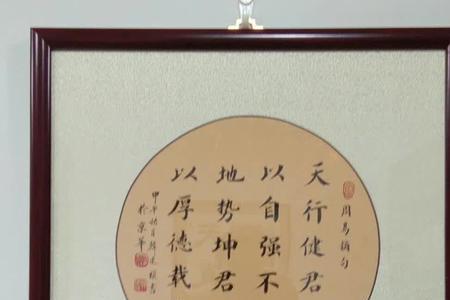 周易摘句
天行健君
以自强不
地势坤君
以厚德载
甲午秋月
於京华